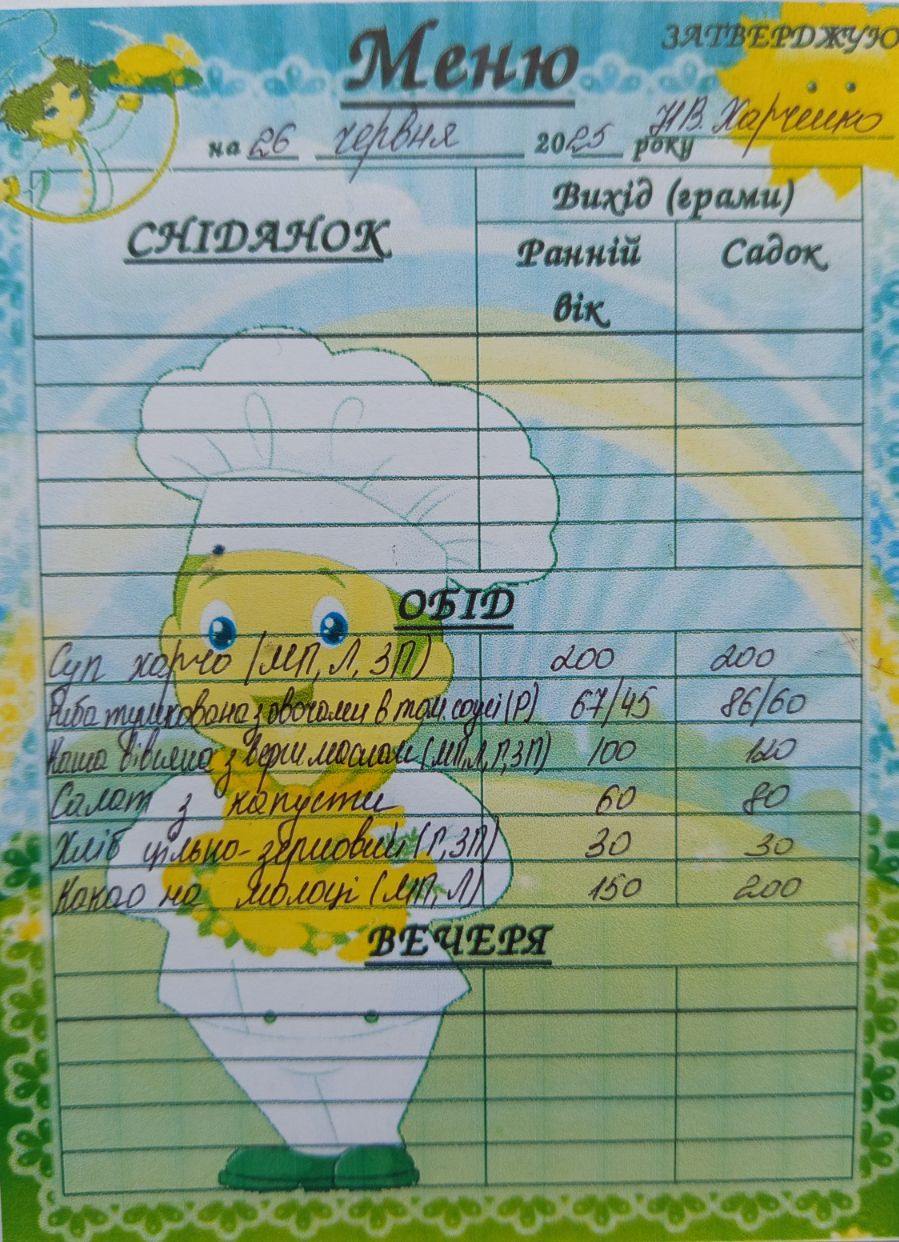 Меню
ЗАТВЕРДЖУЮ
на 26 червня 2025 року Н.В. Харченко
СНІДАНОК
Вихід (грами)
Ранній вік
Садок
ОБІД
Суп харчо (МП, Л, ЗП) 200 200
Риба тушкована з овочами в том. соусі (Р) 67/45 86/60
Каша вівсяна з верш. маслом (МП, Л, Г, ЗП) 100 120
Салат з капусти 60 80
Хліб цільно-зерновий (Г, ЗП) 30 30
Какао на молоці (МП, Л) 150 200
ВЕЧЕРЯ